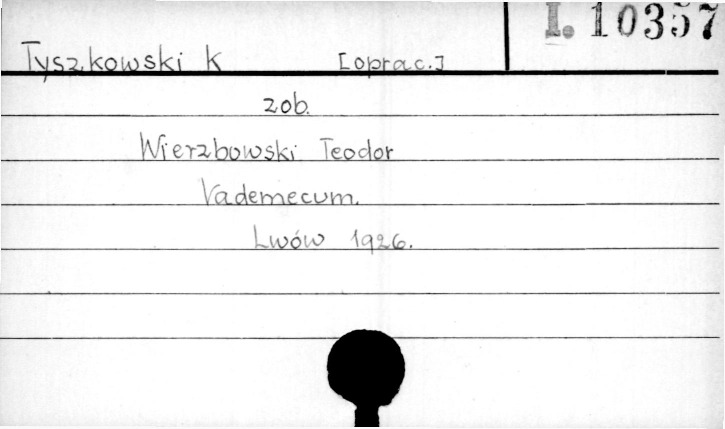 I. 10357
Tyszkowski K [oprac.]
zob.
Wierzbowski Teodor
Vademecum.
Lwów 1926.